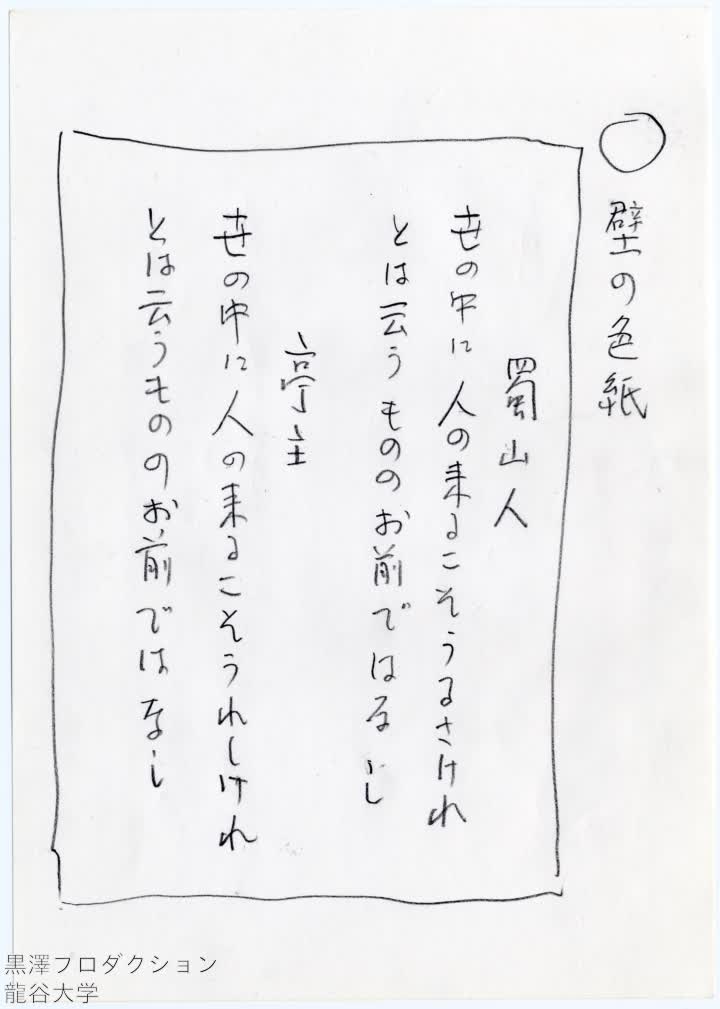 ○ 壁の色紙
蜀山人
世の中に人の来るこそうるさけれ
とは云うもののお前ではなし
亭主
世の中に人の来るこそうれしけれ
とは云うもののお前ではなし
黒澤プロダクション
龍谷大学